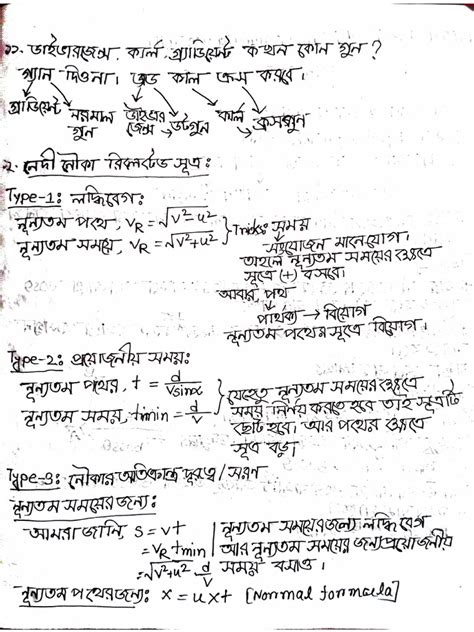 ১১. ডাইভারজেন্স, কার্ল, গ্র্যাডিয়েন্ট কখন কোন গুন ?
গ্যান দিওনা। ডুড কাল ক্রস করবে।
গ্রাডিয়েন্ট নরমাল গুন ডাইভারজেন্স → ডটগুন কার্ল → ক্রসগুন
২. নৌকা রিলেটেড সূত্রঃ
Type-1: লদ্ধিবেগঃ
নূন্যতম পথে, VR = √V²-u²
নূন্যতম সময়ে, VR = √V²+u²
Tricks: সময়
সংযোজন মানে যোগ।
তাহলে নূন্যতম সময়ের ক্ষেত্রে
সূত্রে (+) বসবে।
আবার, পথ
পার্থক্য → বিয়োগ
নূন্যতম পথের সূত্রে বিয়োগ।
Type-2: প্রয়োজনীয় সময়ঃ
নূন্যতম পথের, t = d/Vsinα
নূন্যতম সময়, tmin = d/V
যেহেতু নূন্যতম সময়ের ক্ষেত্রে
সময় নির্ণয় করতে হবে তাই সূত্রটি
ছোট হবে। আর পথের ক্ষেত্রে
সূত্র বড়।
Type-3: নৌকার অতিক্রান্ত দূরত্ব / সরণ
নূন্যতম সময়ের জন্যঃ
আমরা জানি, S = vt
= VR tmin
= √V²+u² d/V
নূন্যতম সময়ের জন্যে লদ্ধি বেগ
আর নূন্যতম সময়ের জন্য প্রয়োজনীয়
সময় বসাও।
নূন্যতম পথের জন্যঃ x = uxt [Normal formaula]